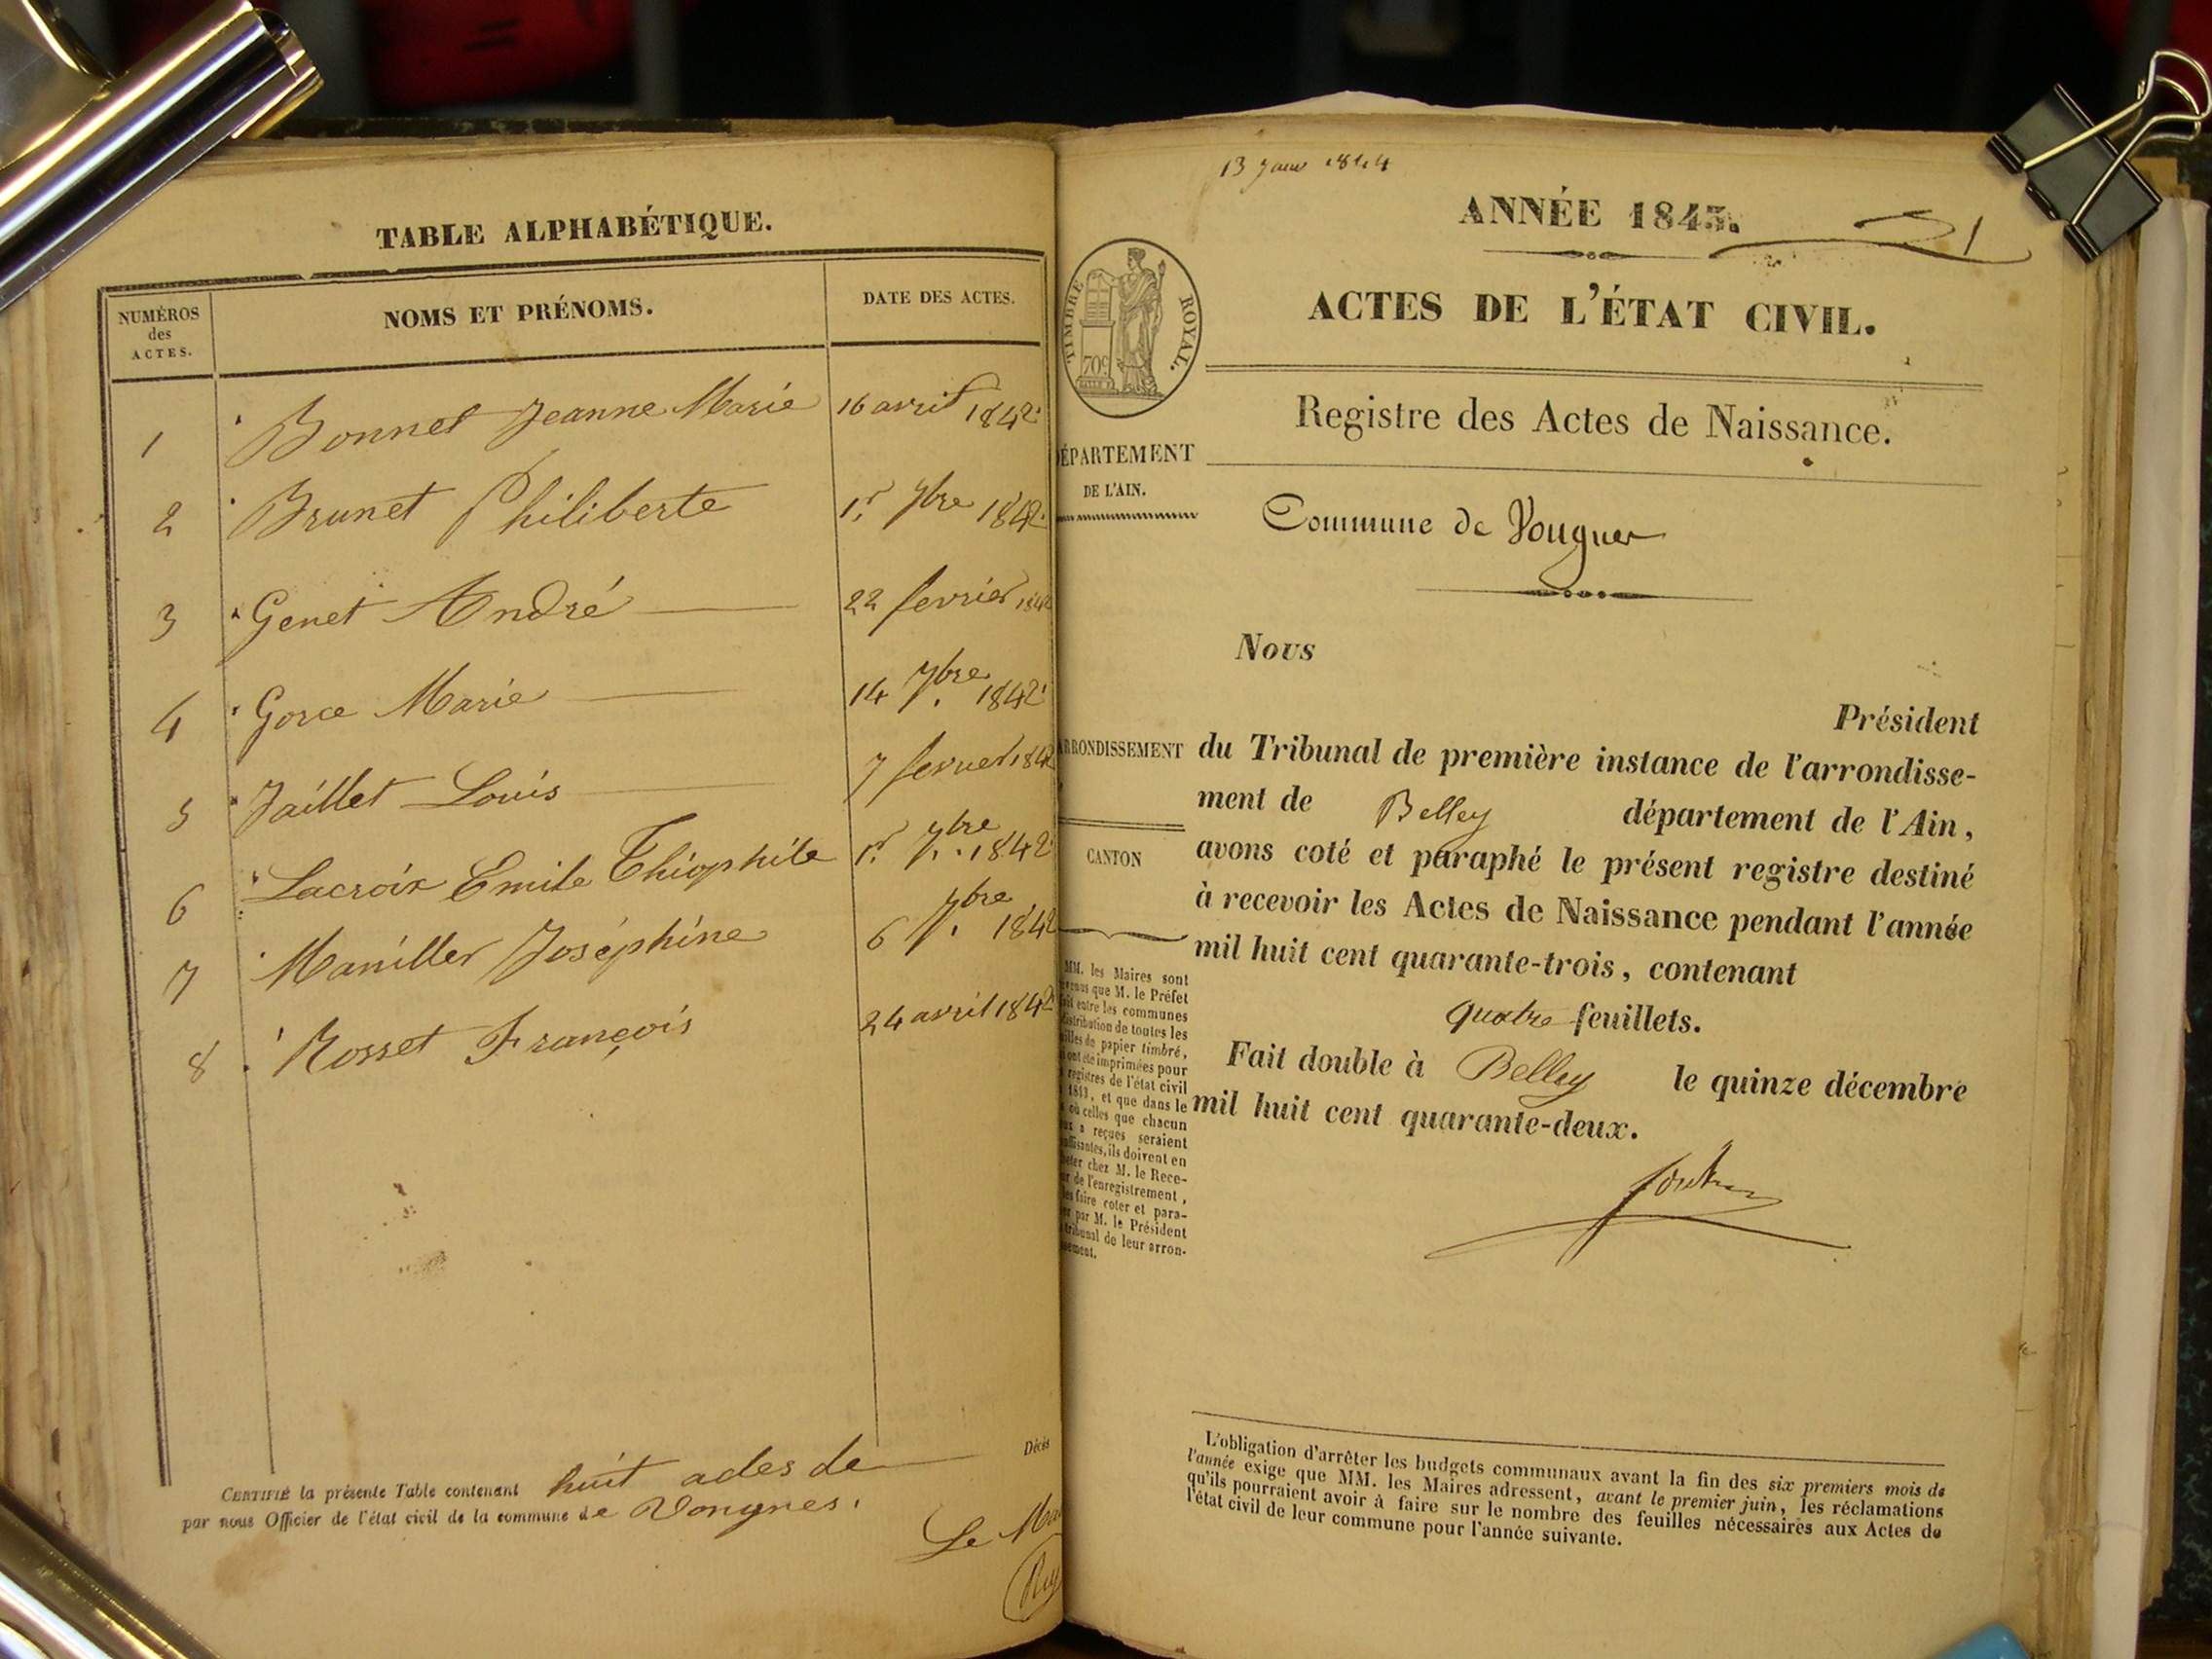 TABLE ALPHABÉTIQUE.
NUMÉROS
des
ACTES.
NOMS ET PRÉNOMS.
DATE DES ACTES.
1 Bonnet Jeanne Marie 16 avril 1842
2 Brunet Philiberte 1.r 7bre 1842
3 Genet André 22 fevrier 1842
4 Gorce Marie 14 7bre 1842
5 Jaillet Louis 7 fevrier 1842
6 Lacroix Emile Thiophile 1.r 7bre 1842
7 Maniller Joséphine 6 7bre 1842
8 Rosset François 24 avril 1842
CERTIFIÉ la présente Table contenant huit actes de Décès
par nous Officier de l'état civil de la commune de Vongnes.
Le Ma
13 Janv 1844
ANNÉE 1843.
TIMBRE ROYAL.
70c
ACTES DE L'ÉTAT CIVIL.
Registre des Actes de Naissance.
ÉPARTEMENT
DE L'AIN.
Commune de Vougnes
Nous
Président
RRONDISSEMENT
du Tribunal de première instance de l'arrondisse-
ment de Belley département de l'Ain,
CANTON
avons coté et paraphé le présent registre destiné
à recevoir les Actes de Naissance pendant l'année
mil huit cent quarante-trois, contenant
quatre feuillets.
Fait double à Belley le quinze décembre
mil huit cent quarante-deux.
MM. les Maires sont
venus que M. le Préfet
ait entre les communes
distribution de toutes les
illes de papier timbré,
ont été imprimées pour
registres de l'état civil
1843, et que dans le
où celles que chacun
ux a reçues seraient
uffisantes, ils doivent en
eter chez M. le Rece-
ur de l'enregistrement,
les faire coter et para-
er par M. le Président
tribunal de leur arron-
sement.
L'obligation d'arrêter les budgets communaux avant la fin des six premiers mois de
l'année exige que MM. les Maires adressent, avant le premier juin, les réclamations
qu'ils pourraient avoir à faire sur le nombre des feuilles nécessaires aux Actes de
l'état civil de leur commune pour l'année suivante.